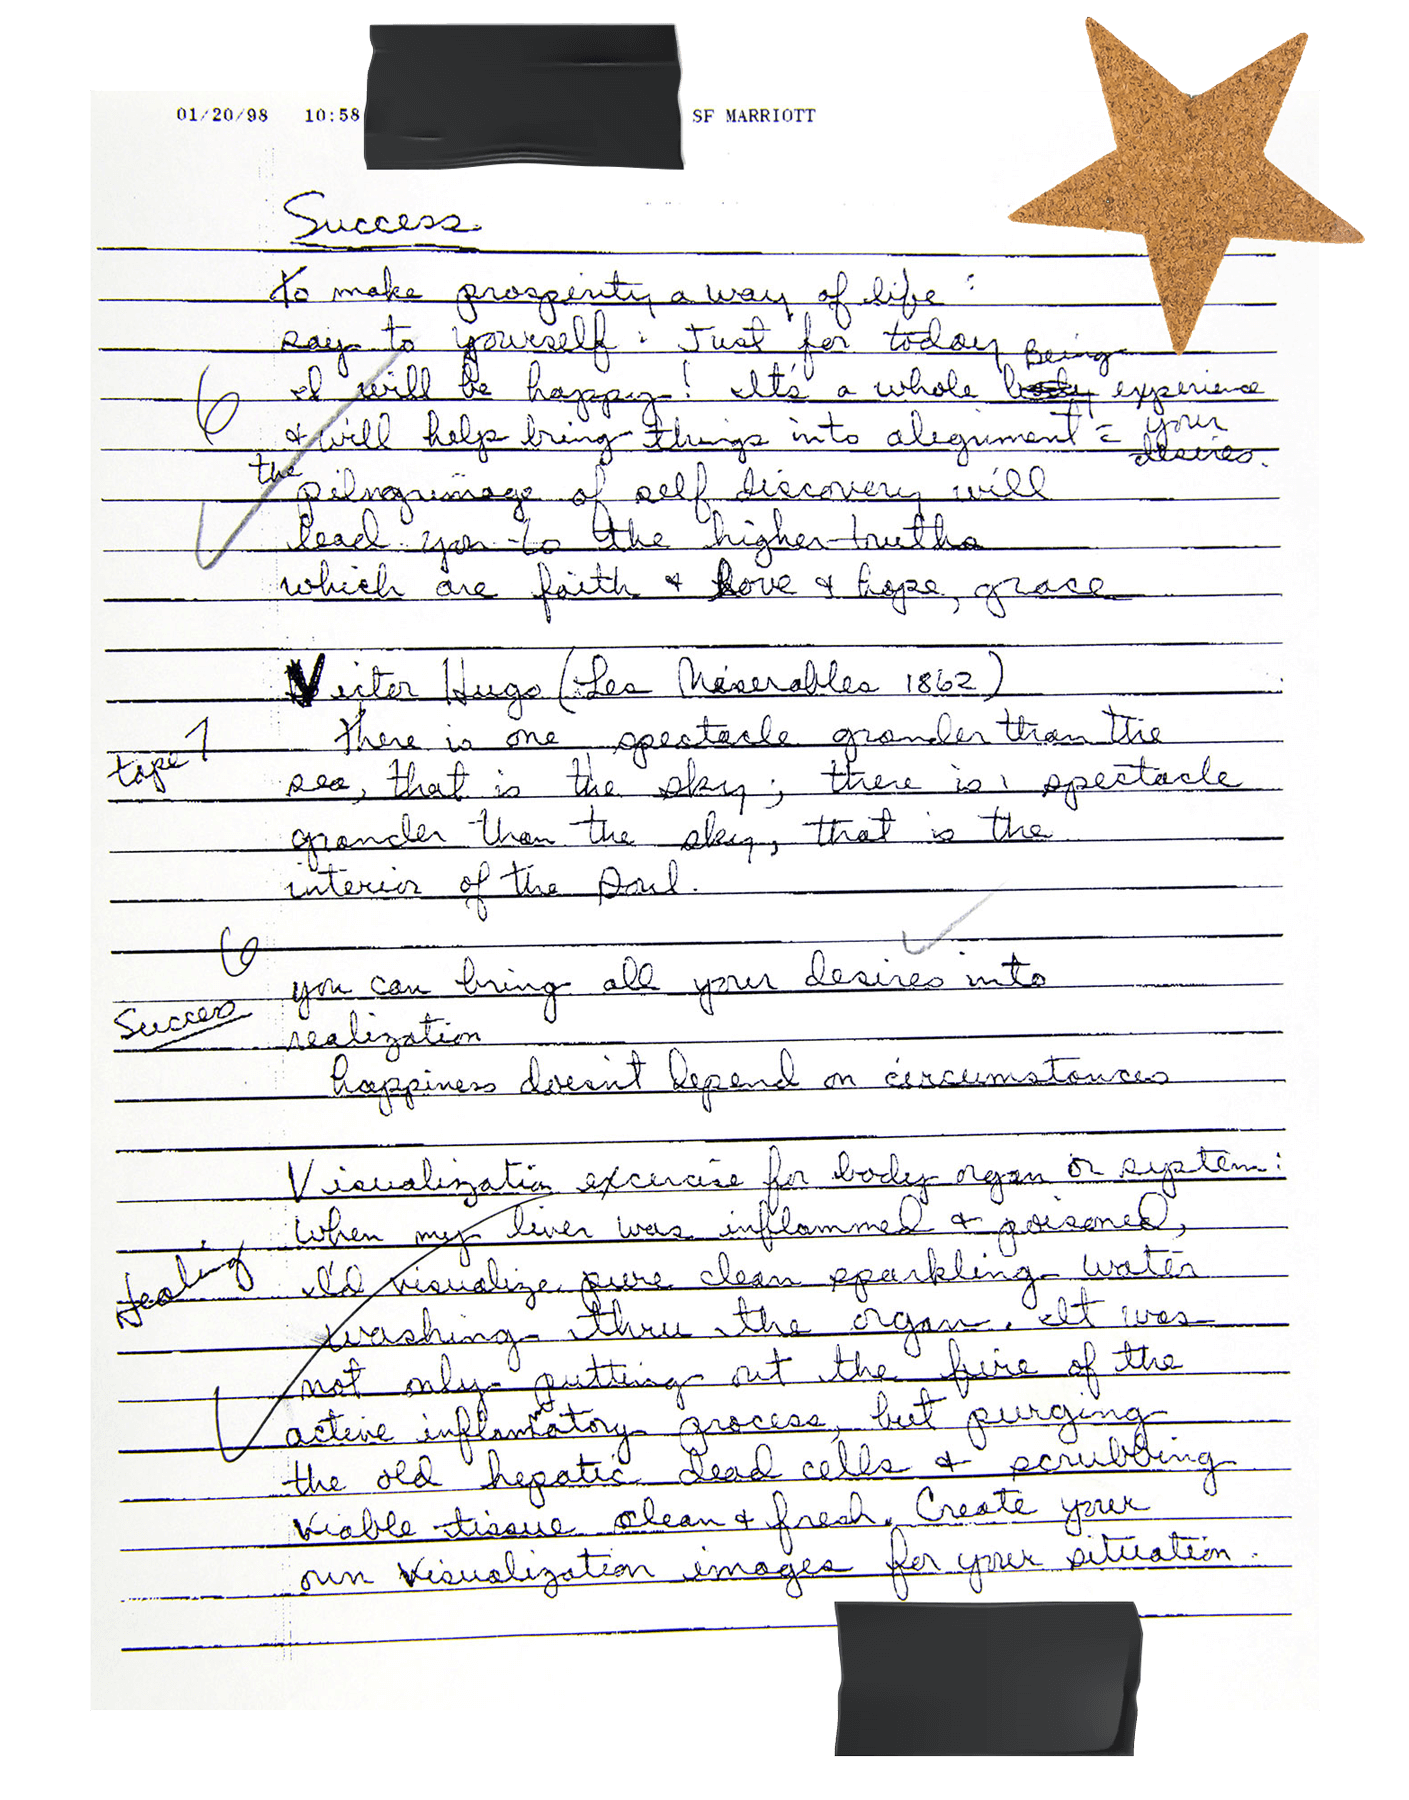 01/20/98 10:58 SF MARRIOTT
Success.
to make prosperity a way of life:
say to yourself: Just for today
Being
6 I will be happy! It's a whole body experience
& will help bring things into alegnment c̄ your
desires.
the
pilngrimage of self discovery will
lead you to the higher truths
which are faith & Love & hope, grace
Victor Hugo (Les Miserables 1862)
tape 1 There is one spectacle grander than the
sea, that is the sky; there is 1 spectacle
grander than the sky, that is the
interior of the soul.
6
you can bring all your desires into
Success
realization
happiness doesn't depend on circumstances
Visualization excercise for body organ or system:
when my liver was inflammed & poisoned,
Healing I'd visualize pure clean sparkling water
washing thru the organ. It was
not only putting out the fire of the
active inflammatory process, but purging
the old hepatic dead cells & scrubbing
viable tissue clean & fresh. Create your
own visualization images for your situation.